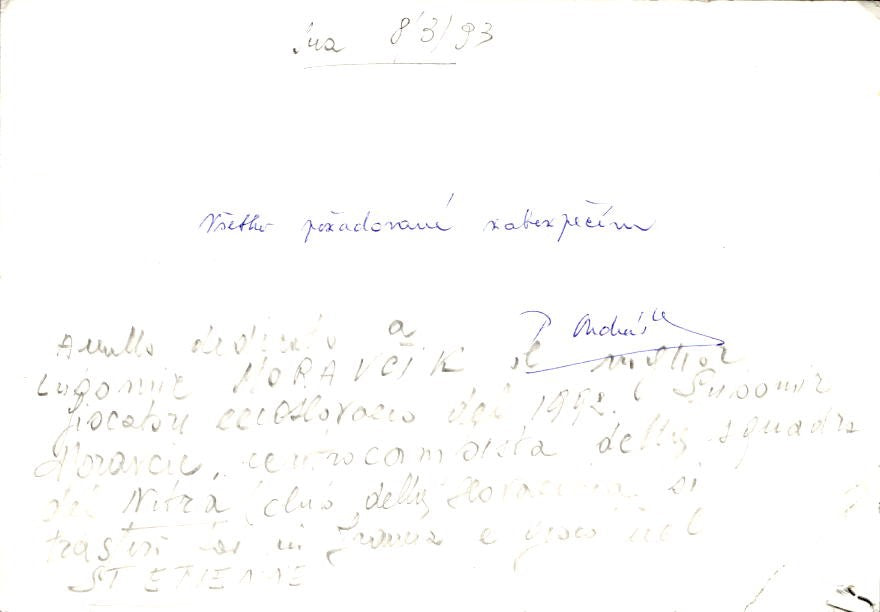 8/3/93
Všetko požadované zabezpečím
P Ondrášik
Anullo dedicato a
Lubomir MORAVCIK il miglior
giocatore cecoslovacco del 1992. Lubomir
Moravcik, centrocampista della squadra
del Nitra (club della Slovacchia si
in Francia e gioca nel
ST ETIENNE